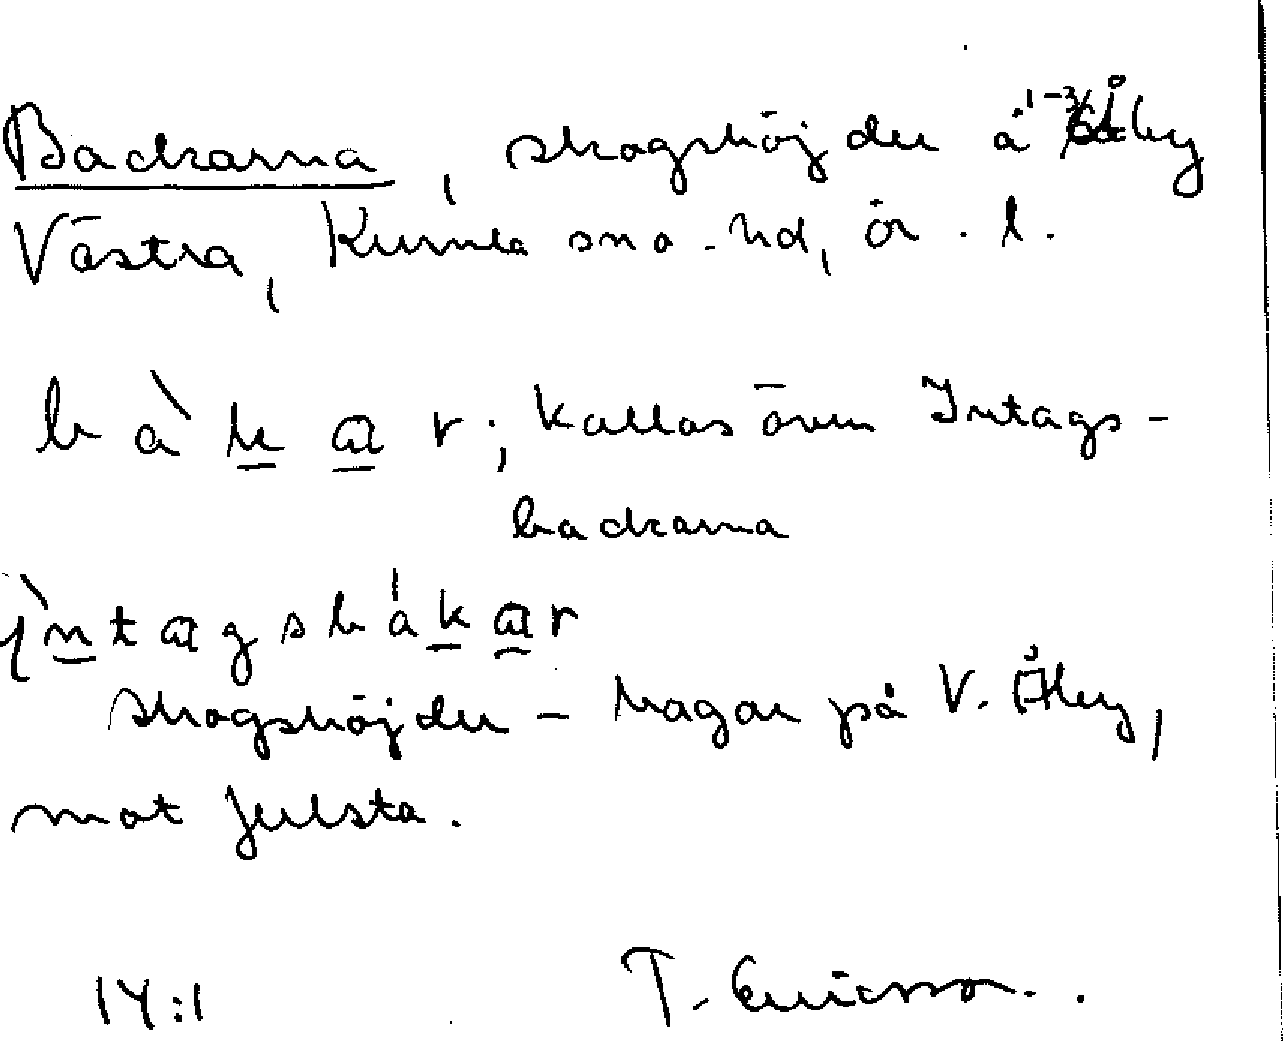 Backarna, skogshöjder å 1-3/ Åby
Västra, Kumla sn o. hd, ör. l.
bàkar; kallas även Intags-
backarna
ìntagsbákar
skogshöjder - hagar på V. Åby,
mot Julsta.
14:1 T. Ericsson.